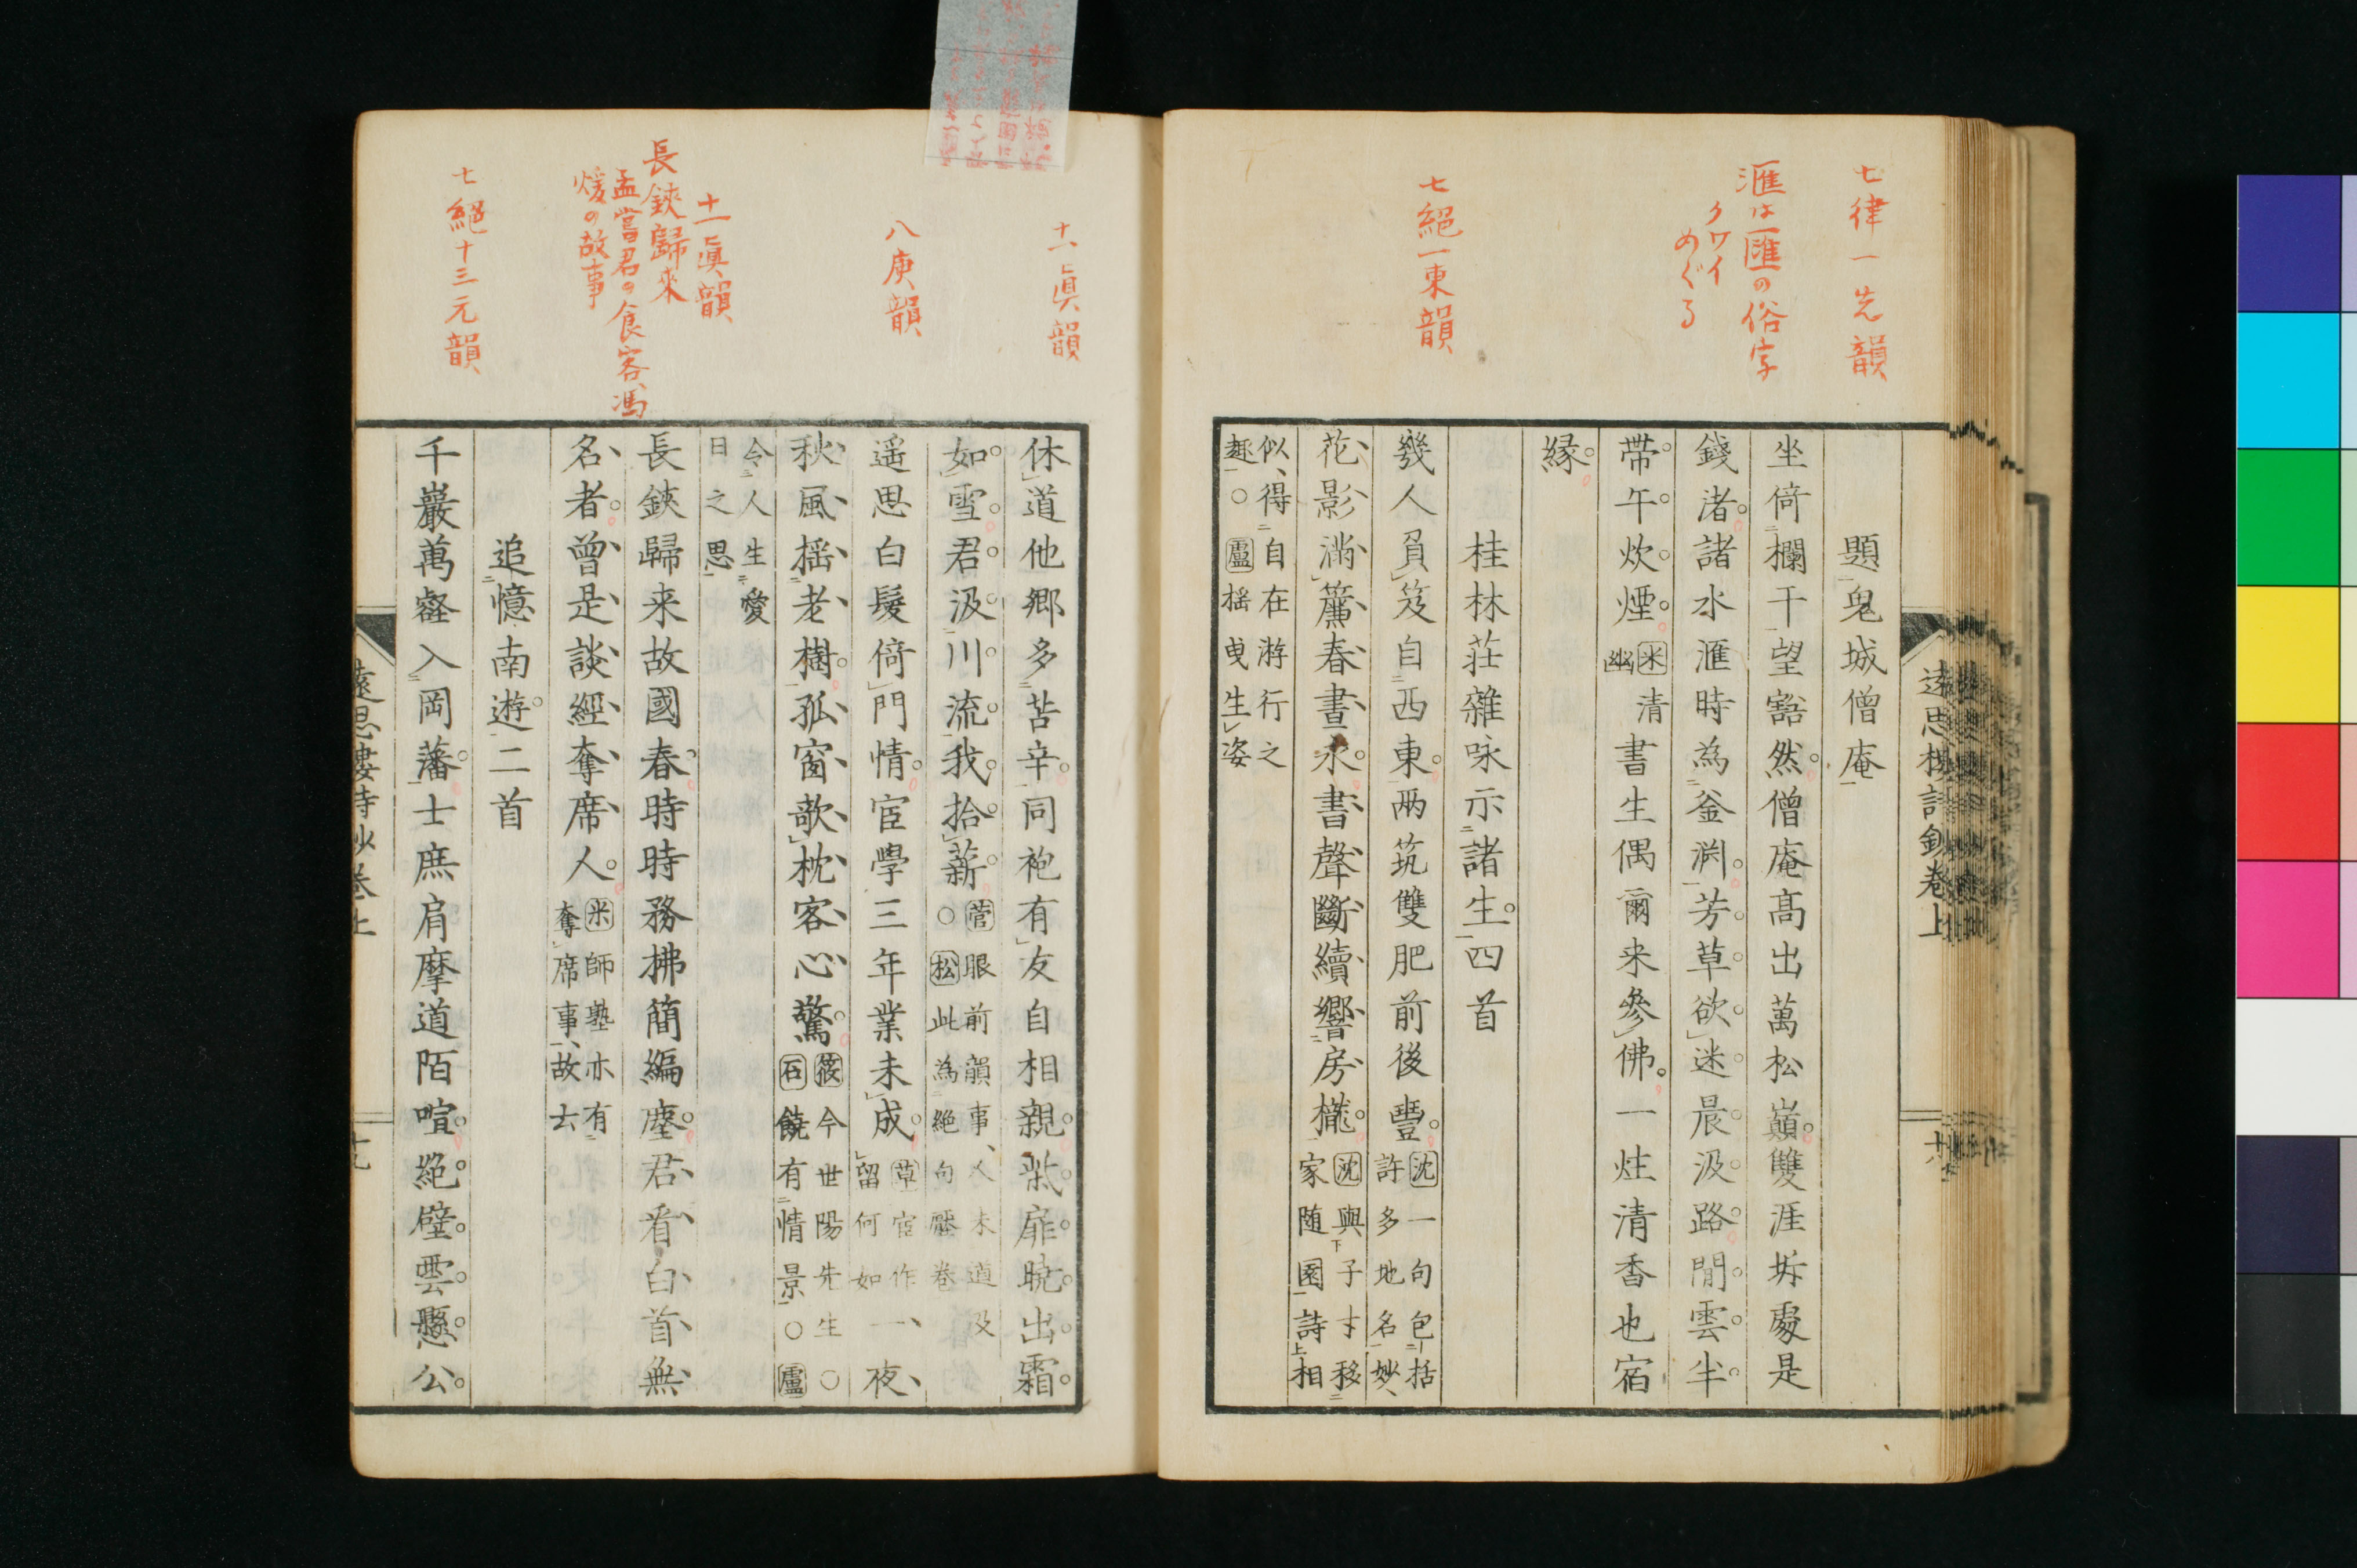 七律一先韻
滙は匯の俗字
クワイ
めぐる
七絕一東韻
題鬼城僧庵
坐倚欄干望豁然僧庵高出萬松巓雙涯拆處是
錢渚諸水滙時為釜渕芳草欲迷晨汲路閒雲半
帶午炊煙
米清
幽
書生偶爾来參佛一炷清香也宿
縁
桂林莊雜咏示諸生四首
幾人負笈自西東兩筑雙肥前後豐
沈一句包括
許多地名妙
花影滿簾春晝永書聲斷續響房櫳
沈與子才移
家随園詩相
似得自在游行之
趣○盧榣曳生姿
遠思樓詩鈔卷上
十八
十一眞韻
八庚韻
十一眞韻
長鋏歸來
孟嘗君の食客、馮
煖の故事
七絕十三元韻
休道他鄉多苦辛同袍有友自相親柴扉曉出霜
如雪君汲川流我拾薪
菅眼前韻事人未道及
○松此為絕句壓卷
遥思白髮倚門情宦學三年業未成
草宦作一夜
留何如
秋風揺老樹孤窗歌枕客心驚
筱今世陽先生○
石饒有情景○盧
今人生愛
日之思
長鋏歸来故國春時時務拂簡編塵君看白首無
名者曾是談經奪席人
米師塾亦有
奪席事故云
追憶南遊二首
千巖萬壑入岡藩士庶肩摩道陌喧絕壁雲懸公
遠思樓詩鈔卷上
十九